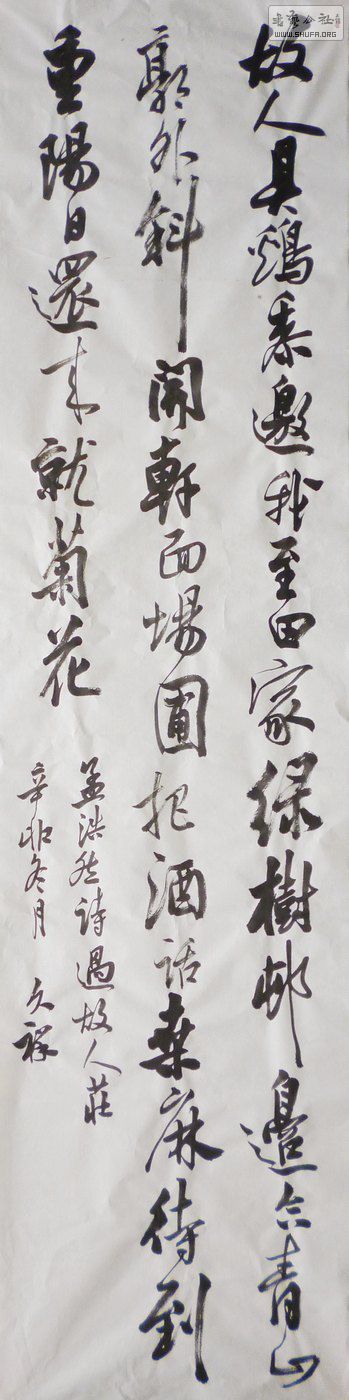 故人具鷄黍邀我至田家緑樹邨邊合青山
郭外斜開軒面場圃把酒話桑麻待到
重陽日還来就菊花
孟浩然詩過故人莊
辛卯冬月 久祥
書藝公社
WWW.SHUFA.ORG